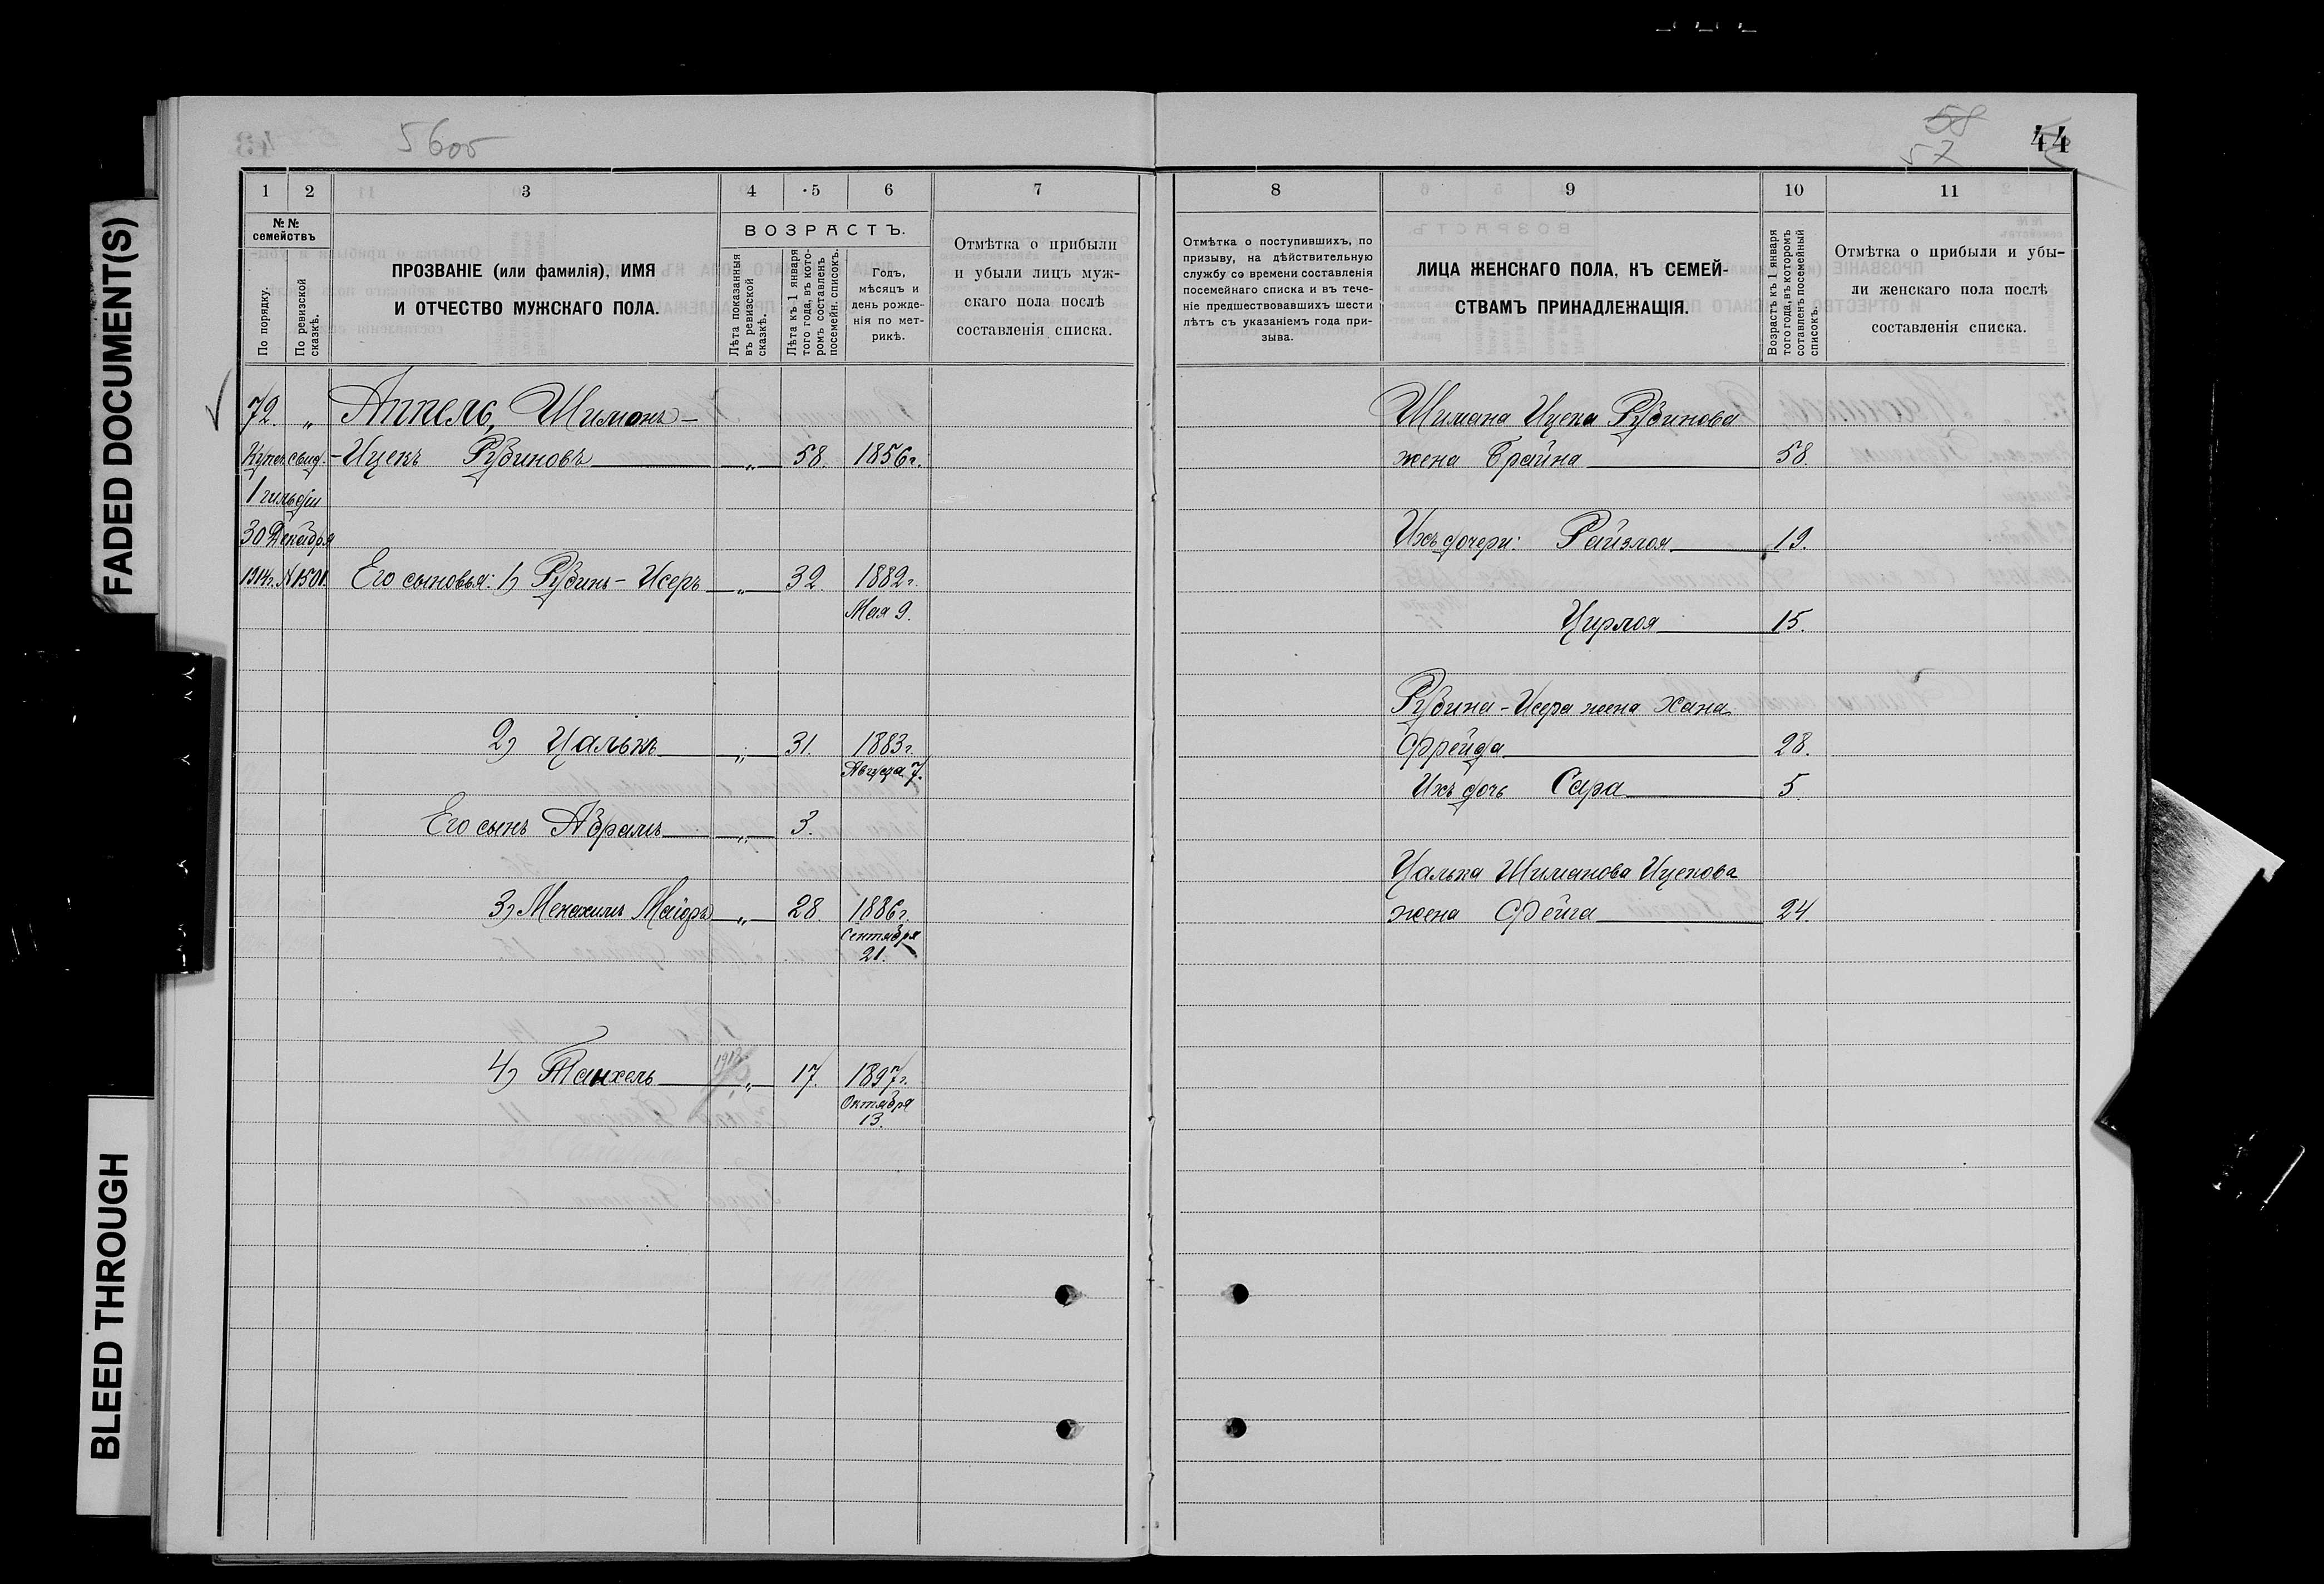 5605
58
57
44
1
2
3
4
5
6
7
№ №
семействъ
По порядку.
По ревизской
сказкѣ.
ПРОЗВАНІЕ (или фамилія), ИМЯ
И ОТЧЕСТВО МУЖСКАГО ПОЛА.
ВОЗРАСТЪ.
Лѣта показанныя
въ ревизской
сказкѣ.
Лѣта къ 1 января
того года, въ кото-
ромъ составленъ
посемейн. списокъ.
Годъ,
мѣсяцъ и
день рожде-
нія по мет-
рикѣ.
Отмѣтка о прибыли
и убыли лицъ муж-
скаго пола послѣ
составленія списка.
72. „ Аппель, Шимонъ-
Купеч. свид. -Ицекъ Рубиновъ „ 58. 1856 г.
1 гильдіи
30 Декабря
1914 г. № 1501. Его сыновья: 1) Рубинъ-Исеръ „ 32. 1882 г.
Мая 9.
2) Цалькъ „ 31. 1883 г.
Августа 7.
Его сынъ Абрамъ „ 3.
3) Менахимъ Майоръ „ 28 1886 г.
Сентября
21.
4) Танхель „ 17. 1897 г.
Октября
13.
8
9
10
11
Отмѣтка о поступившихъ, по
призыву, на дѣйствительную
службу со времени составленія
посемейнаго списка и въ тече-
ніе предшествовавшихъ шести
лѣтъ съ указаніемъ года при-
зыва.
ЛИЦА ЖЕНСКАГО ПОЛА, КЪ СЕМЕЙ-
СТВАМЪ ПРИНАДЛЕЖАЩІЯ.
Возрастъ къ 1 января
того года, въ которомъ
сотавленъ посемейный
списокъ.
Отмѣтка о прибыли и убы-
ли женскаго пола послѣ
составленія списка.
Шимана Ицека Рубинова
жена Брайна 58.
Ихъ дочери: Райзлоя 19.
Цирлоя 15.
Рубина-Исера жена Хана
Фрейда 28.
Ихъ дочь Сара 5.
Цалька Шиманова Ицекова
жена Фейга 24.
FADED DOCUMENT(S)
BLEED THROUGH